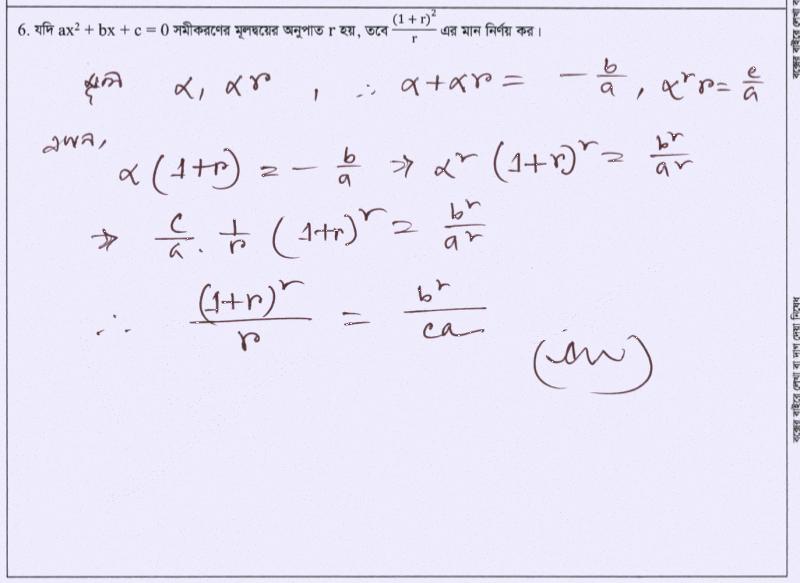 6. যদি ax² + bx + c = 0 সমীকরণের মূলদ্বয়ের অনুপাত r হয়, তবে (1 + r)²/r এর মান নির্ণয় কর।
মূল α, αr , ∴ α+αr = - b/a , α²r = c/a
এখন,
α(1+r) = - b/a ⇒ α²(1+r)² = b²/a²
⇒ c/a . 1/r (1+r)² = b²/a²
∴ (1+r)²/r = b²/ca (Ans)
বক্সের বাইরে লেখা বা দাগ দেয়া নিষেধ